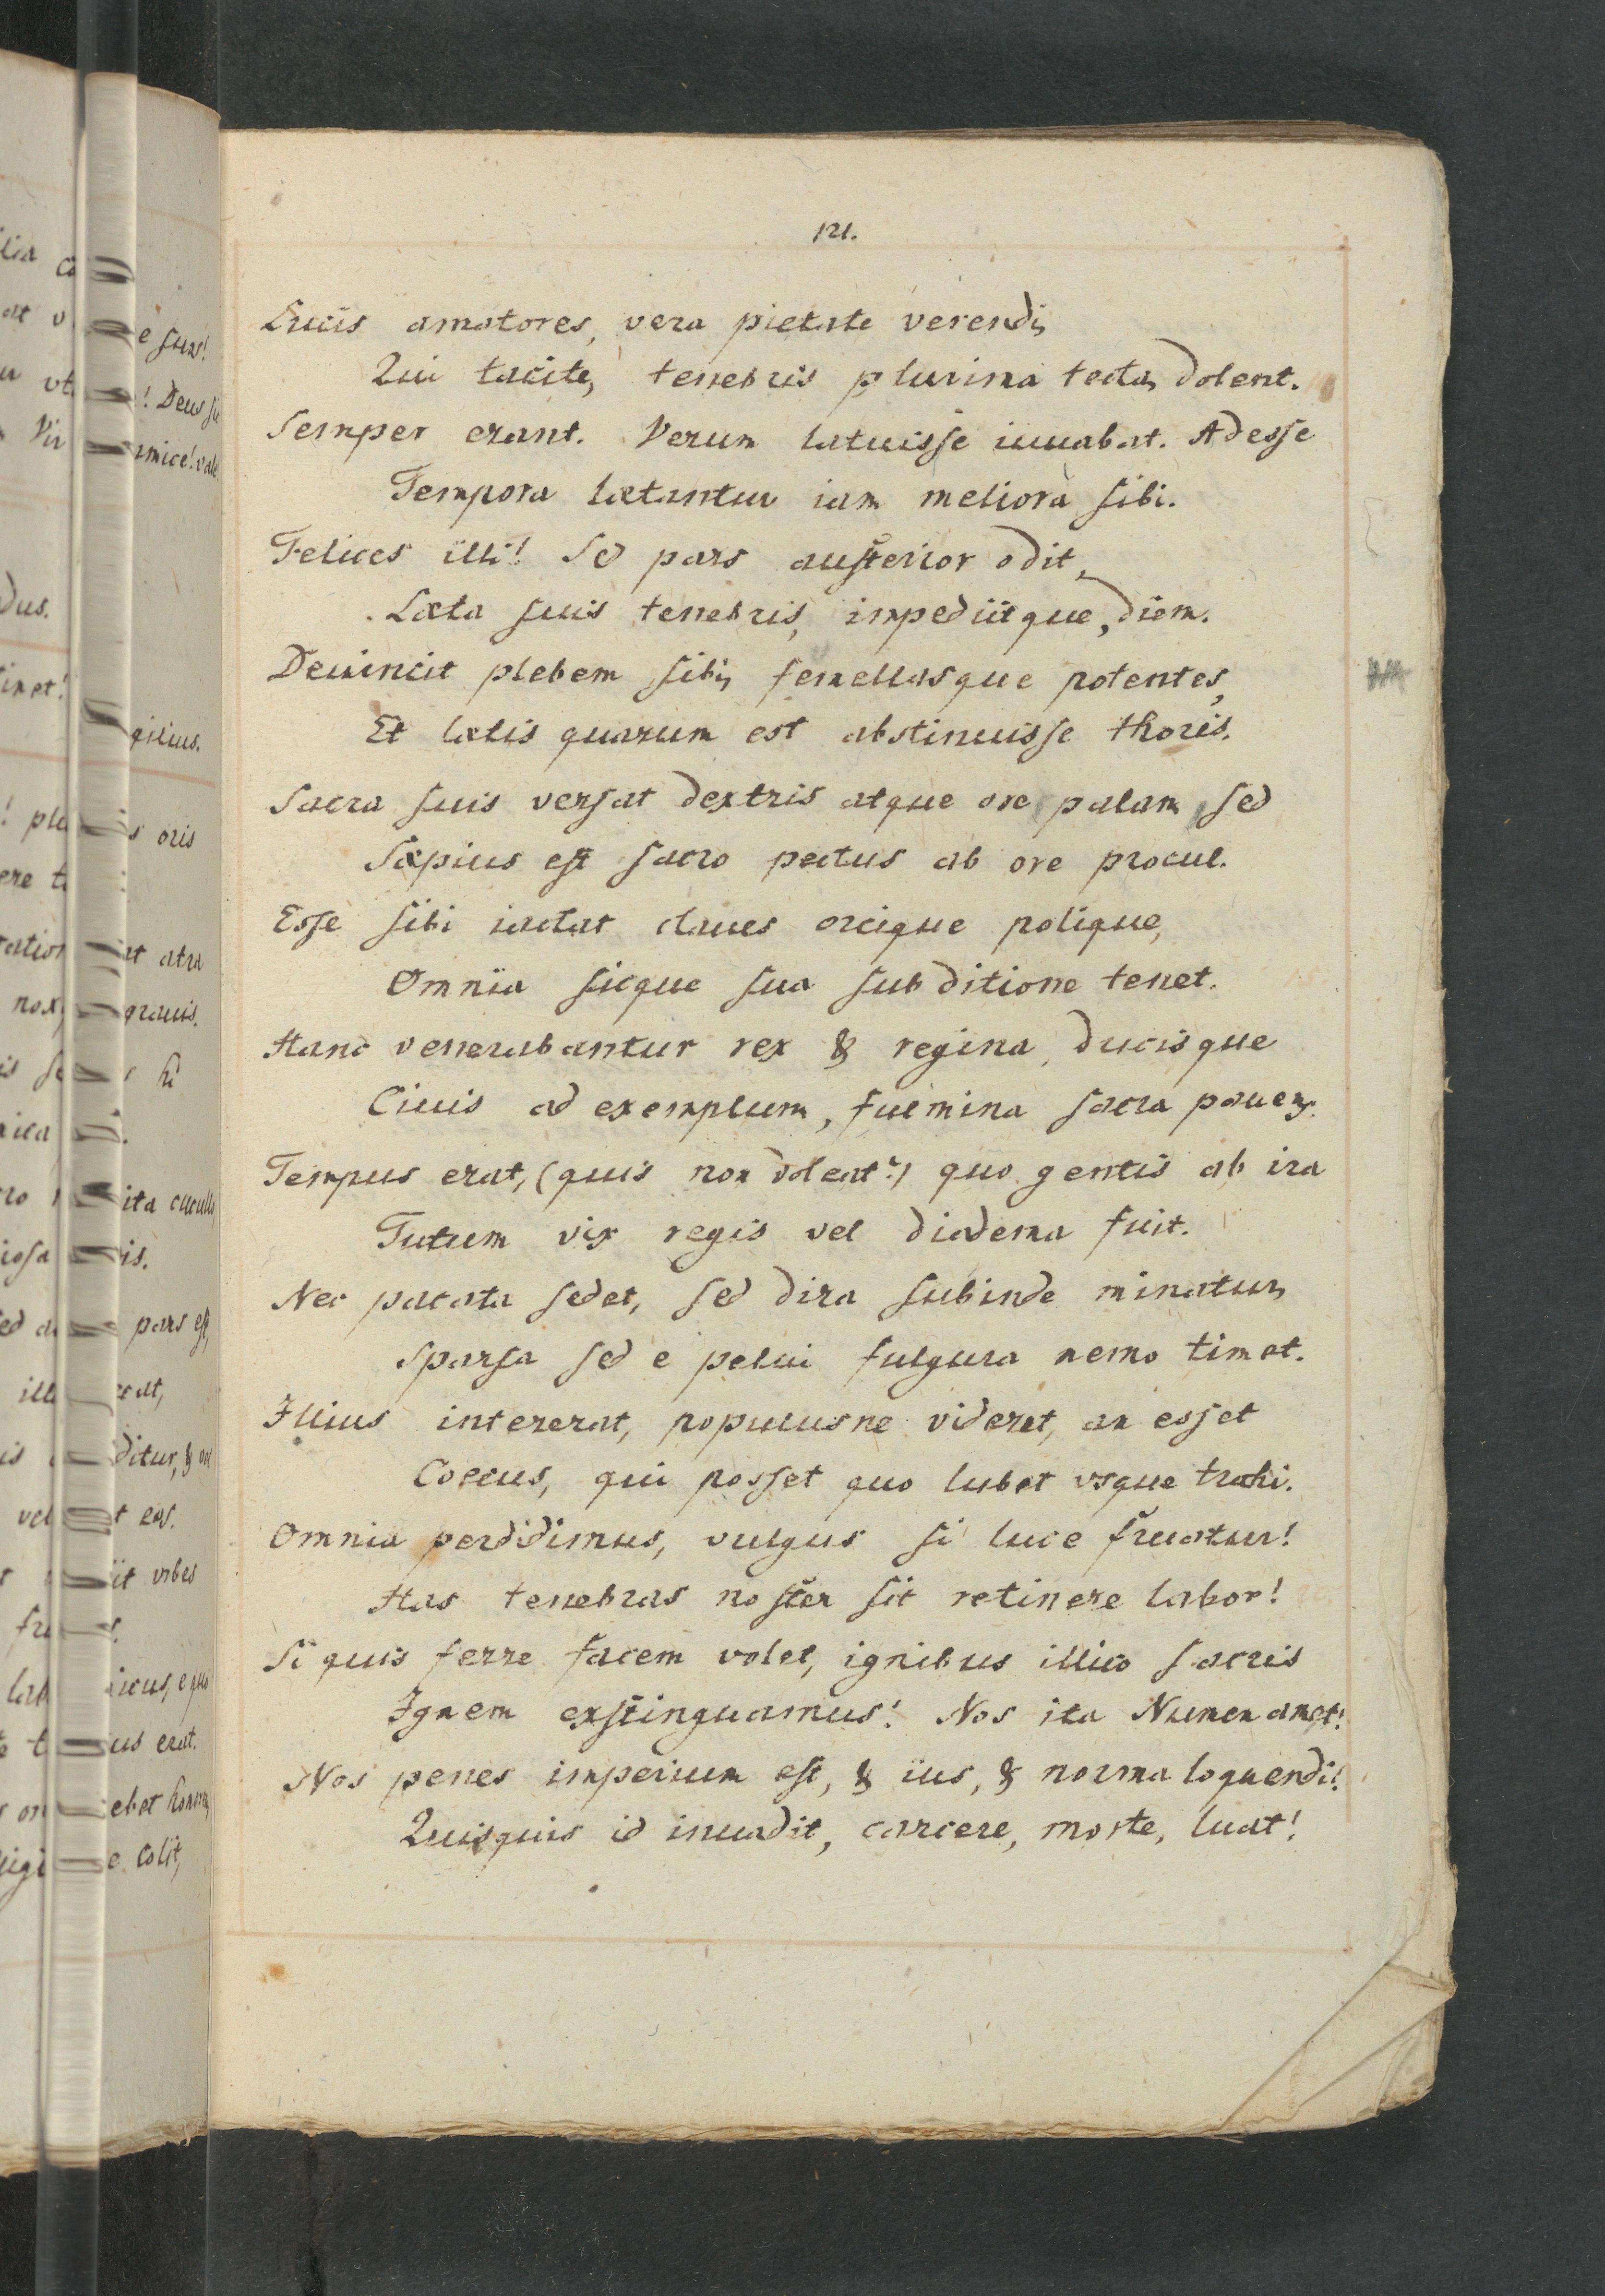 121.
Lucis amatores, vera pietate verendi,
Qui tacite, tenebris plurima tecta, dolent.
Semper erant. Verum latuisse iuuabat. Adesse
Tempora lætantur iam meliora sibi.
Felices illi! Sed pars austerior odit,
Læta suis tenebris, impediitque, diem.
Deuincit plebem sibi, femellasque potentes,
Et lætis quarum est abstinuisse thoris.
Sacra suis versat dextris atque ore palam, sed
Sæpius est sacro pectus ab ore procul.
Esse sibi iactat claues orcique polique,
Omnia sicque sua sub ditione tenet.
Hanc venerabantur rex & regina, ducisque
Ciuis ad exemplum, fulmina sacra pauens.
Tempus erat, (quis non doleat?) quo gentis ab ira
Tutum vix regis vel diadema fuit.
Nec pacata sedet, sed dira subinde minatur,
Sparsa sed e pelui fulgura nemo timet.
Illius intererat, populusne videret, an esset
Coecus, qui posset quo lubet vsque trahi.
Omnia perdidimus, vulgus si luce fruatur!
Has tenebras noster sit retinere labor!
Si quis ferre facem volet, ignibus illico sacris
Ignem exstinguamus! Nos ita Numen amet!
Nos penes imperium est, & ius, & norma loquendi!
Quisquis id inuadit, carcere, morte, luat!